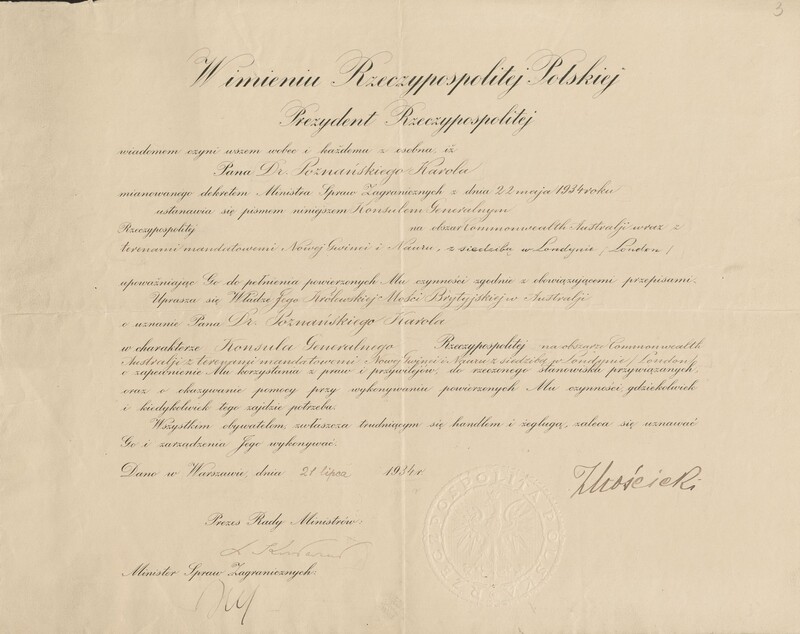 3
W imieniu Rzeczypospolitej Polskiej
Prezydent Rzeczypospolitej
wiadomem czyni wszem wobec i każdemu z osobna, iż
Pana Dr. Poznańskiego Karola
mianowanego dekretem Ministra Spraw Zagranicznych z dnia 22 maja 1934 roku
ustanawia się pismem niniejszem Konsulem Generalnym
Rzeczypospolitej na obszar Commonwealth Australji wraz z
terenami mandatowemi Nowej Gwinei i Nauru, z siedzibą w Londynie /London/
upoważniając Go do pełnienia powierzonych Mu czynności zgodnie z obowiązującemi przepisami.
Uprasza się Władze Jego Królewskiej Mości Brytyjskiej w Australji
o uznanie Pana Dr. Poznańskiego Karola
w charakterze Konsula Generalnego Rzeczypospolitej na obszarze Commonwealth
Australji z terenami mandatowemi Nowej Gwinei i Nauru z siedzibą w Londynie /London/
o zapewnienie Mu korzystania z praw i przywilejów, do rzeczonego stanowiska przywiązanych,
oraz o okazywanie pomocy przy wykonywaniu powierzonych Mu czynności, gdziekolwiek
i kiedykolwiek tego zajdzie potrzeba.
Wszystkim obywatelom, zwłaszcza trudniącym się handlem i żeglugą, zaleca się uznawać
Go i zarządzenia Jego wykonywać.
Dano w Warszawie, dnia 21 lipca 1934 r.
I Mościcki
Prezes Rady Ministrów:
Minister Spraw Zagranicznych:
RZECZPOSPOLITA POLSKA